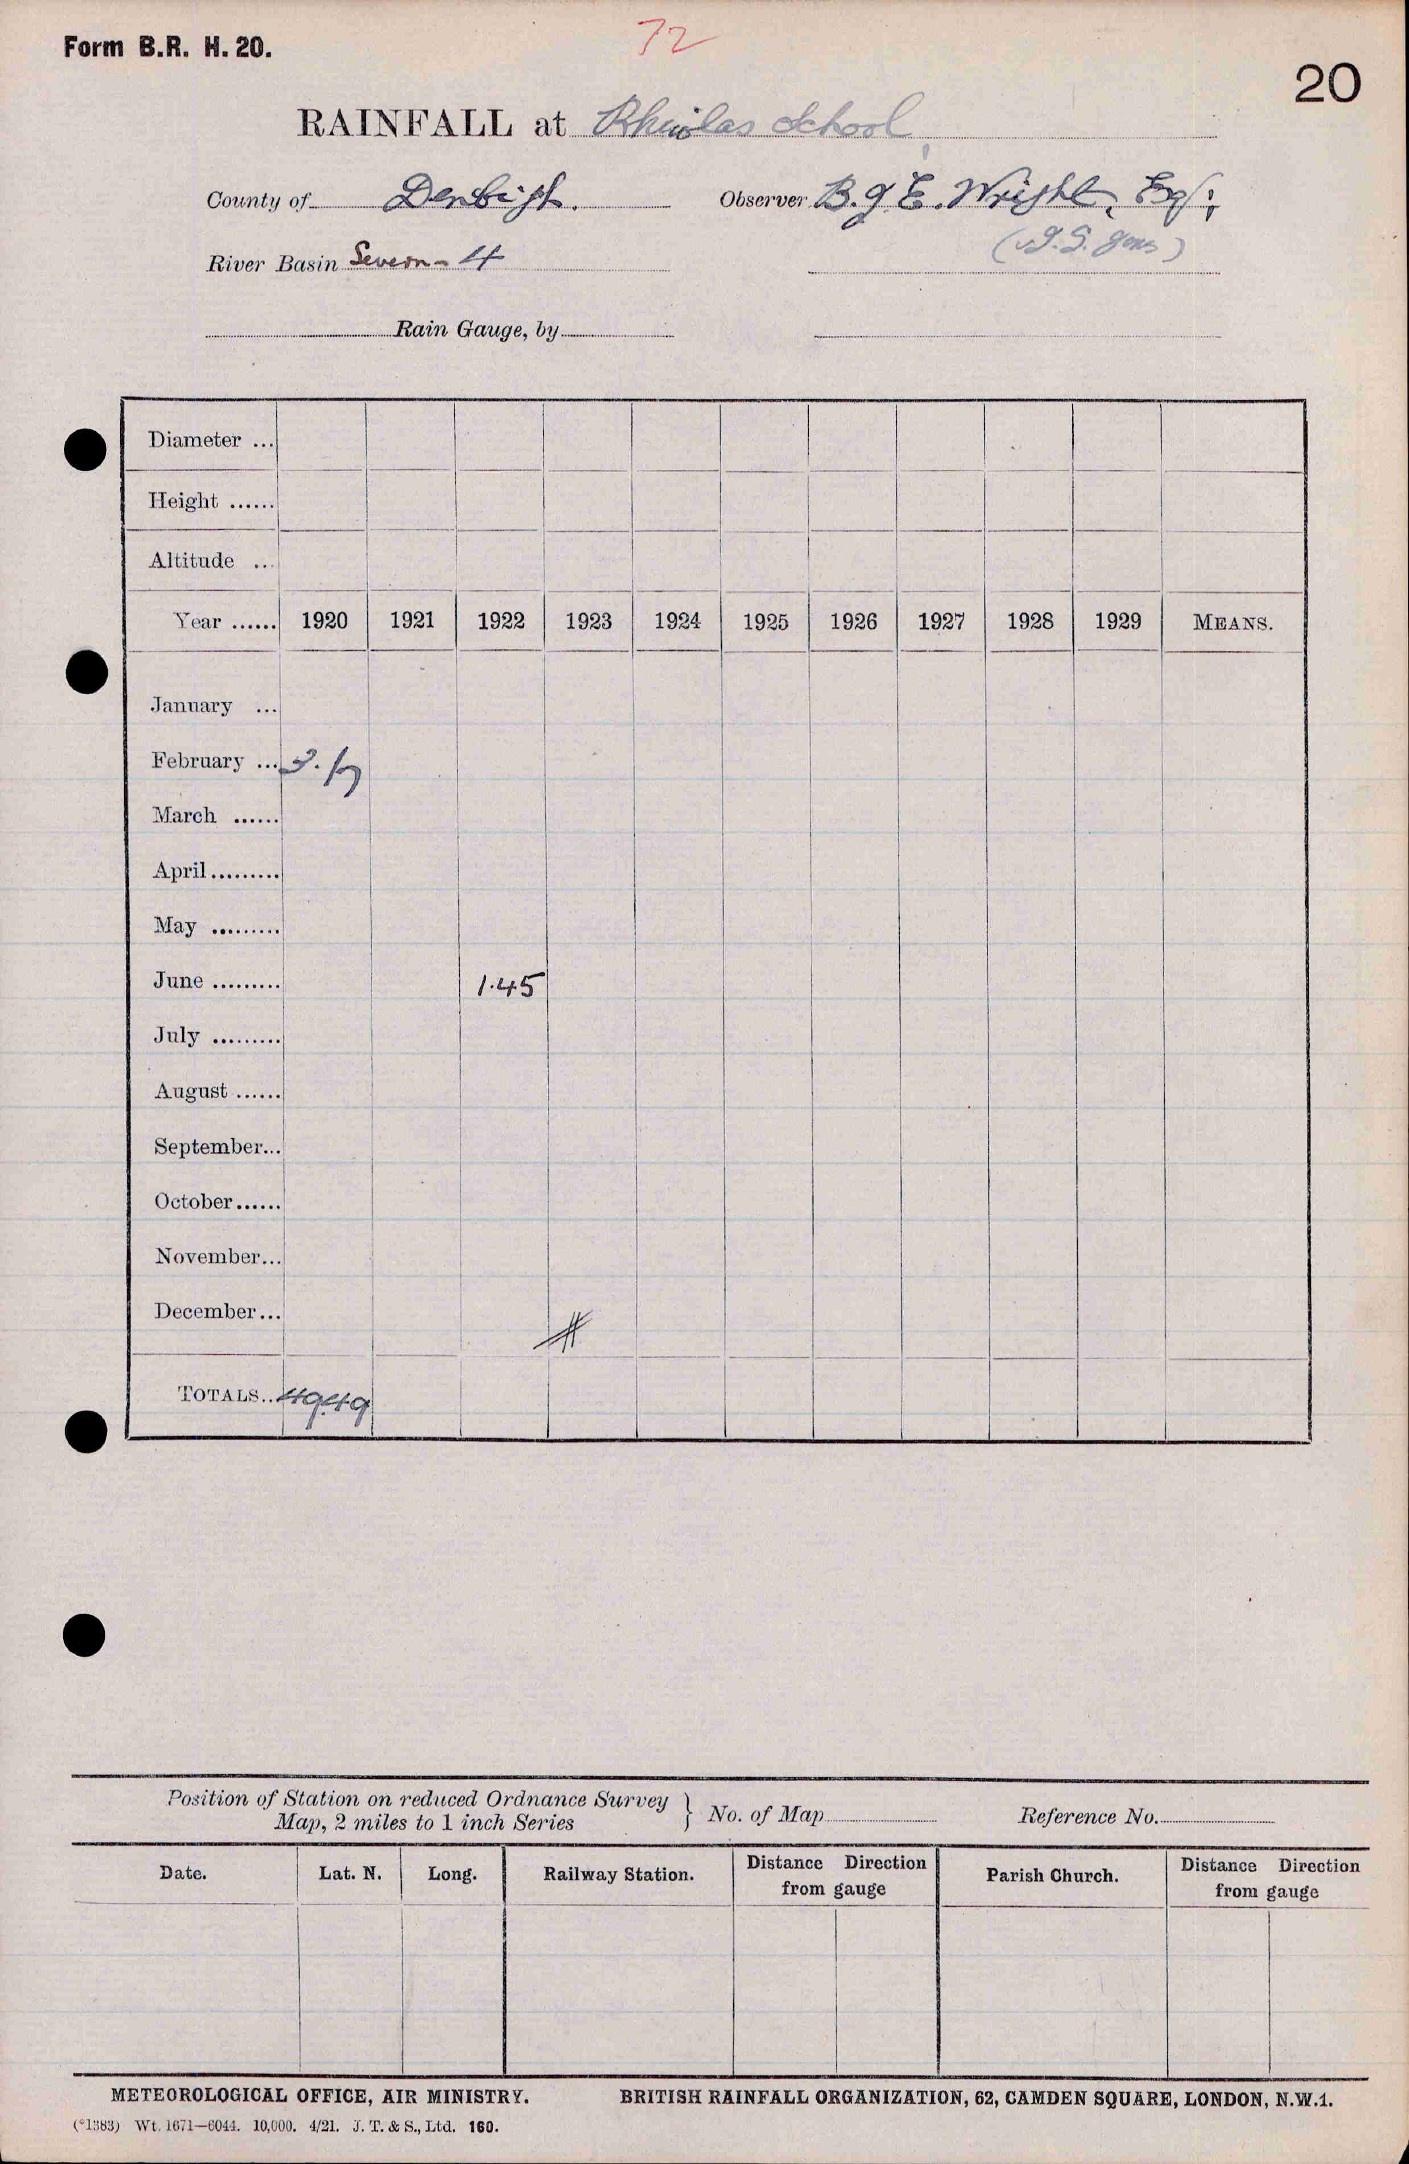 Form B.R. H. 20.
72
20
RAINFALL at Rhiwlas School
County of Denbigh. Observer B. J. E. Wright, Esq;
(J. S. Jones)
River Basin Severn - 4
Rain Gauge, by
Diameter ...
Height ......
Altitude ...
Year ...... 1920 1921 1922 1923 1924 1925 1926 1927 1928 1929 MEANS.
January ...
February ... 3.17
March ......
April.........
May .........
June ......... 1.45
July .........
August ......
September...
October......
November...
December...
TOTALS.. 49.49
Position of Station on reduced Ordnance Survey
Map, 2 miles to 1 inch Series } No. of Map Reference No.
Date. Lat. N. Long. Railway Station. Distance Direction from gauge Parish Church. Distance Direction from gauge
METEOROLOGICAL OFFICE, AIR MINISTRY. BRITISH RAINFALL ORGANIZATION, 62, CAMDEN SQUARE, LONDON, N.W.1.
(*1383) Wt. 1671—6044. 10,000. 4/21. J. T. & S., Ltd. 160.